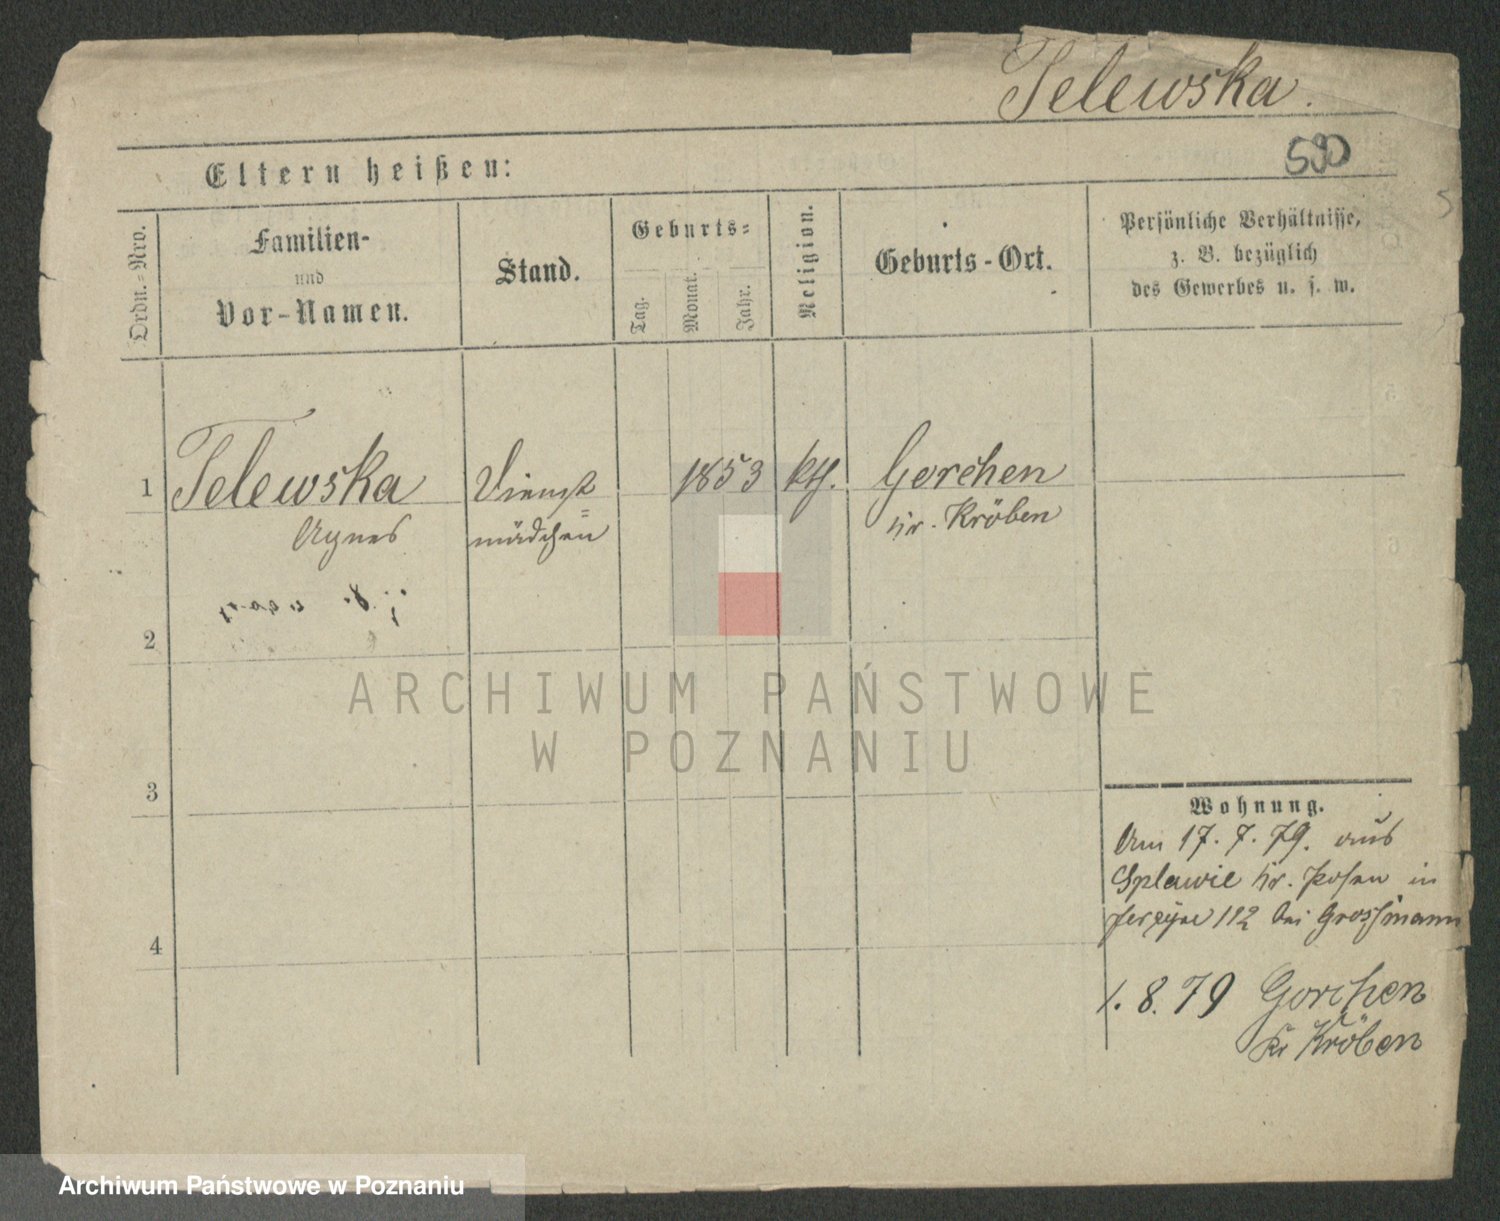 Telewska.
590
Eltern heißen:
Ordn.-Nro.
Familien-
und
Vor-Namen.
Stand.
Geburts-
Tag.
Monat.
Jahr.
Religion.
Geburts-Ort.
Persönliche Verhältnisse,
z. B. bezüglich
des Gewerbes u. s. w.
1 Telewska Dienst 1853 kth. Gorchen
Agnes mädchen Kr. Kröben
2
ARCHIWUM PAŃSTWOWE
W POZNANIU
3
Wohnung.
Am 17. 7. 79. aus
Splawie Kr. Posen in
112 bei Grossmann
4
1. 8. 79 Gorchen
Kr Kröben
Archiwum Państwowe w Poznaniu